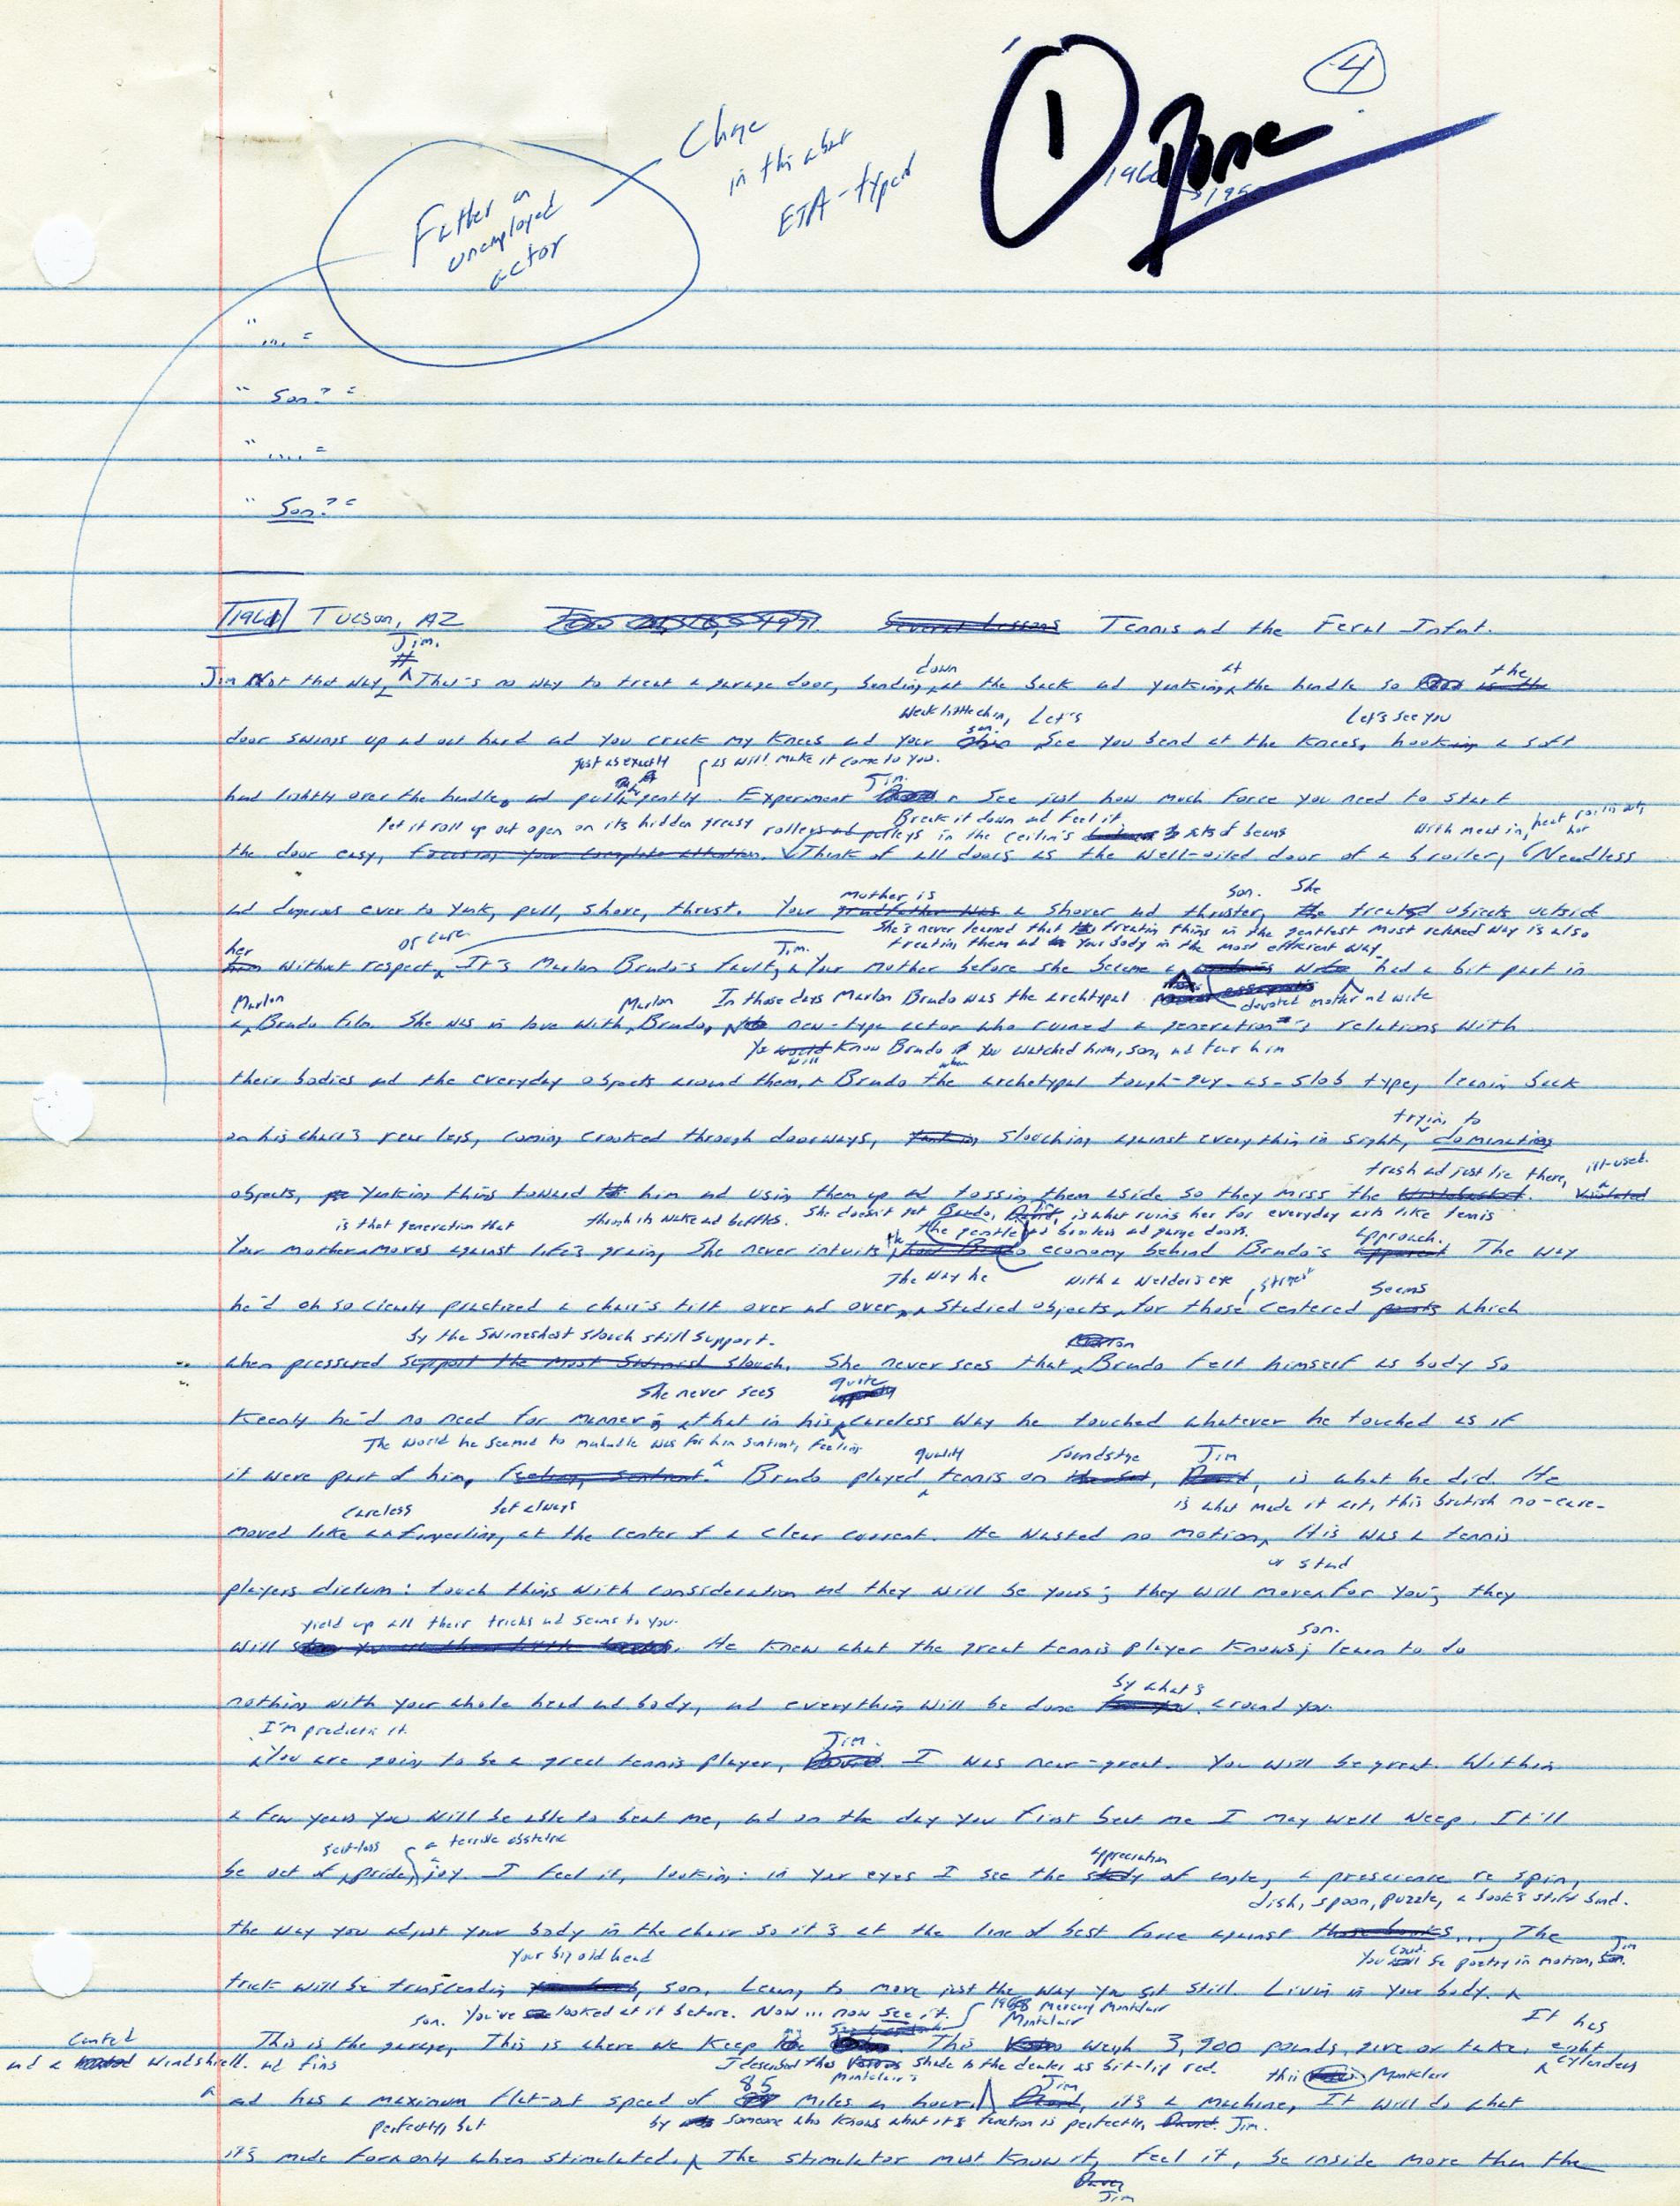 4
1
Done
Father an
unemployed
actor
Change
in this
ETA-typed
"... "
"Son?"
".... "
"Son?"
1960 Tucson, AZ Several Lessons Tennis and the Feral Infant.
Jim.
down at the
Jim Not that way That's no way to treat a garage door, bending at the back and yanking the handle so is the
Weak little chin, Let's Let's see you
son.
door swings up and out hard and you crack my knees and your See you bend at the knees, hooking a soft
just as exactly as will make it come to you.
Jim.
hand lightly over the handle, and pulling gently. Experiment See just how much force you need to start
Break it down and feel it.
let it roll up out open on its hidden greasy rollers and pulleys in the ceiling's sets of beams With meat in, heat roaring out, hot
the door easy, focusing your complete attention. Think of all doors as the well-oiled door of a broiler, Needless
mother is son. She
and dangerous ever to yank, pull, shove, thrust. Your grandfather was a shover and thruster, He treated objects outside
She's never learned that treating things in the gentlest most relaxed way is also
or care treating them and your body in the most efficient way.
her Jim.
him without respect, It's Marlon Brando's fault, Your mother before she became a had a bit part in
devoted mother and wife
Marlon Marlon In those days Marlon Brando was the archtypal
a Brando film She was in love with Brando, new-type actor who ruined a generation's relations with
You would will know Brando when you watched him, son, and fear him
their bodies and the everyday objects around them, Brando the archetypal tough-guy-as-slob type, leaning back
trying to
on his chair's rear legs, coming crooked through doorways, slouching against everything in sight, dominating
trash and just lie there, ill-used.
objects, yanking things toward him and using them up and tossing them aside so they miss the wastebasket. Violated
is that generation that through its wake and baffles. She doesn't get Brando, is what ruins her for everyday arts like tennis
the gentle and broilers and garage doors.
approach.
Your mother moves against life's grain, She never intuits the how Brando economy behind Brando's apparent The way
The way he with a welder's eye strongest seams
he'd oh so clearly practiced a chair's tilt over and over, studied objects, for those centered points which
by the swinishest slouch still support.
when pressured support the most swinish slouch. She never sees that Brando felt himself as body so
She never sees quite
keenly he'd no need for manner, that in his careless way he touched whatever he touched as if
The world he seemed to manhandle was for him sentient, feeling
quality soundstage Jim
it were part of him, feeling, sentient. Brando played tennis on the set, David, is what he did. He
careless but always is what made it art, this brutish no-care-
moved like a fingerling, at the center of a clear current. He wasted no motion, His was a tennis
or stand
players dictum: touch things with consideration and they will be yours; they will move for you; they
yield up all their tricks and seams to you.
will show you all their little tricks. He knew what the great tennis player knows; son. learn to do
by what's
nothing with your whole head and body, and everything will be done for you. around you.
I'm predicting it.
Jim.
You are going to be a great tennis player, David. I was near-great. You will be great. Within
a few years you will be able to beat me, and on the day you first beat me I may well weep. It'll
selfless a terrible obsolete
appreciation
be out of pride, joy. I feel it, looking: in your eyes I see the study of angle, a prescience re spin,
dish, spoon, puzzle, a book's stiff bind.
the way you adjust your body in the chair so it's at the line of best force against those books..., The
Your big old head You will be poetry in motion, son. Jim
trick will be transcending, son. Learning to move just the way you sit still. Living in your body.
son. You've looked at it before. Now... now see it. 1968 Mercury Montclair
Montclair It has
This is the garage, This is where we keep the This weighs 3,900 pounds, give or take, eight
canted cylinders
and a windshield. and fins I described this shade to the dealer as bit-lip red. this Montclair
Montclair's
85 Jim
and has a maximum flat-out speed of miles an hour. David, it's a machine, It will do what
perfectly, but by someone who knows what its function is perfectly, David. Jim.
it's made for only when stimulated. The stimulator must know it, feel it, be inside more than the
Jim